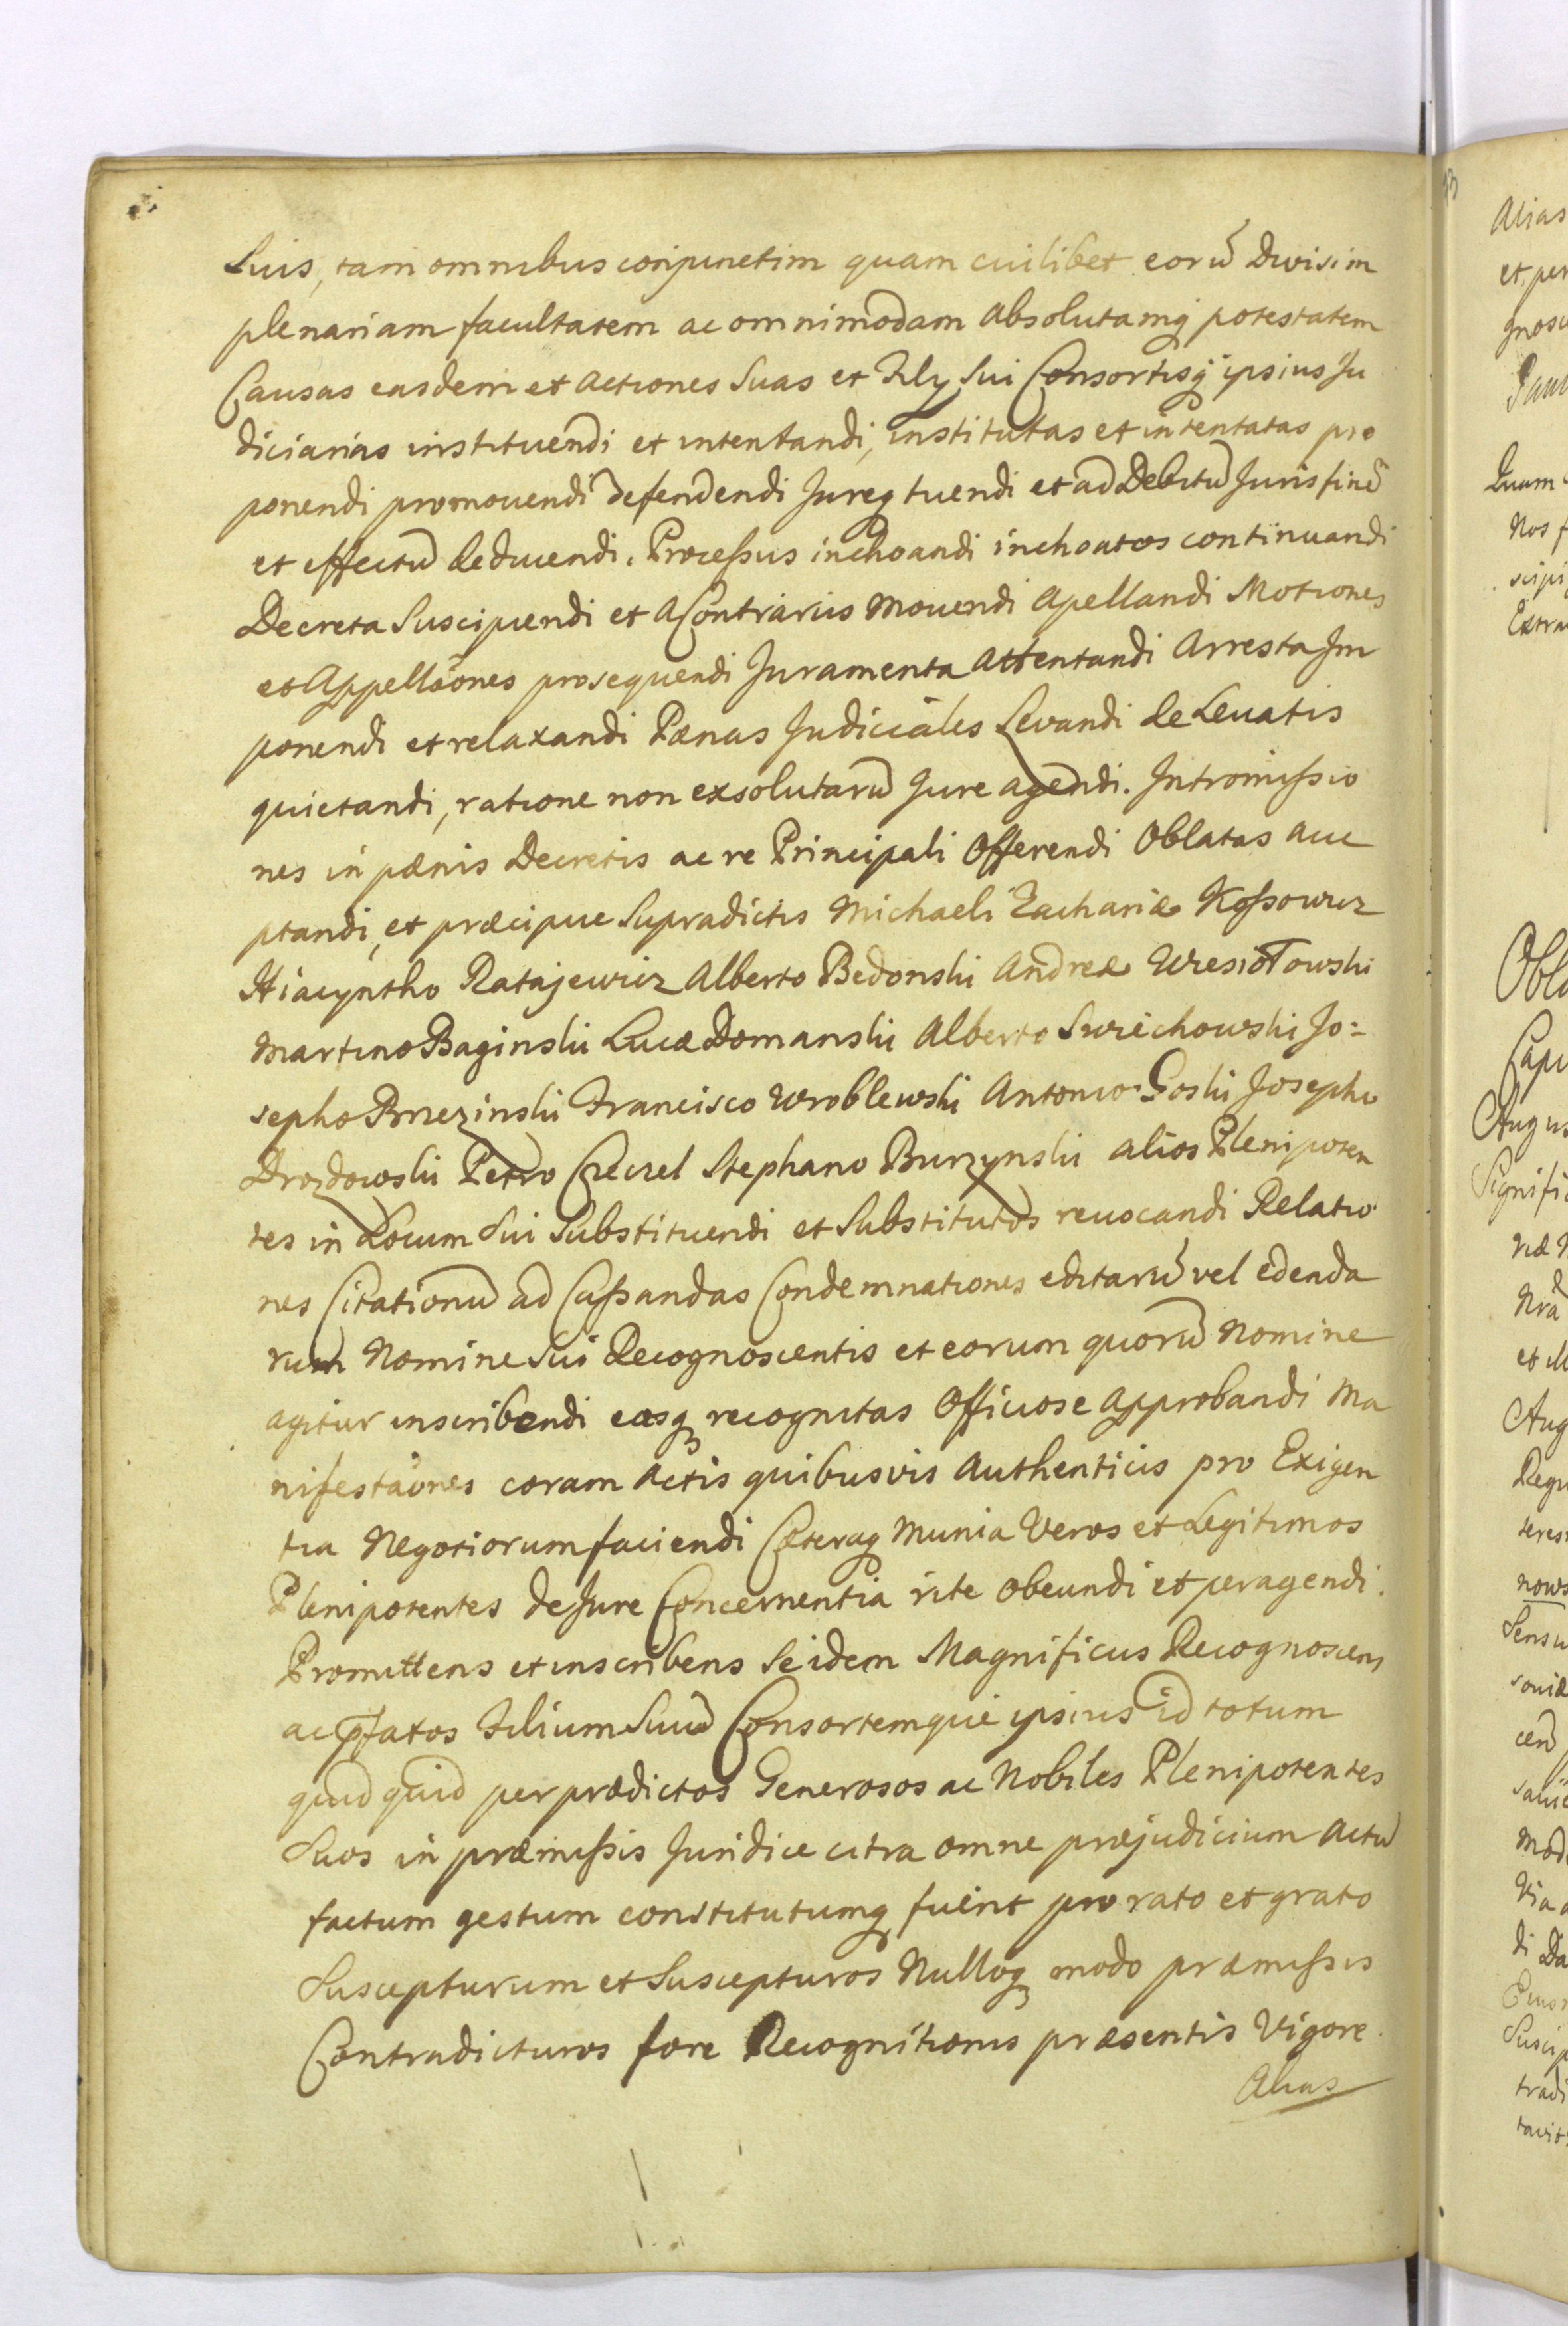 Suis, tam omnibus conjunctim quam cuilibet eorũ Divisim
plenariam facultatem ac omnimodam absolutamq́ potestatem
Causas easdem et actiones Suas et Filÿ Sui Consortisq́ ipsius Ju
diciarias instituendi et intentandi, institutas et intentatas pro
ponendi promovendi defendendi Jureq tuendi et ad Debitũ Juris finẽ
et effectũ deducendi. Processus inchoandi inchoatos continuandi
Decreta Suscipiendi et a Contrariis Movendi apellandi Motiones
et Appellãones prosequendi Juramenta attentandi Arresta Im
ponendi et relaxandi Pænas Judiciales Levandi de Levatis
quietandi, ratione non exsolutarũ Jure agendi. Intromissio
nes in pænis Decretis ac re Principali Offerendi Oblatas acce
ptandi, et præcipue Supradictis Michaeli Zachariæ Kossowicz
Hiacyntho Ratajewicz Alberto Bedonski Andreæ Wresiołowski
Martino Baginski Lucæ Domanski Alberto Swiechowski Jo=
sepho Brzezinski Francisco Wroblewski Antonio Goski Josepho
Drozdowski Petro Stephano Burzynski alios Plenipoten
tes in Locum Sui Substituendi et Substitutos revocandi Relatio
nes Citationũ ad Cassandas Condemnationes editarũ vel edenda
rum Nomine Sui Recognoscentis et eorum quorũ Nomine
agitur inscribendi easq recognitas Officiose approbandi Ma
nifestãones coram Actis quibusvis Authenticis pro Exigen
tia Negotiorum faciendi Cæteraq Munia Veros et Legitimos
Plenipotentes de Jure Concernentia rite obeundi et peragendi.
Promittens et inscribens Se idem Magnificus Recognoscens
ac pfatos Filium Suũ Consortemque ipsius id totum
quidquid per prædictos Generosos ac Nobiles Plenipotentes
Suos in præmissis Juridice citra omne præjudicium actũ
factum gestum constitutumq fuerit pro rato et grato
Suscepturum et Suscepturos Nulloq modo præmissis
Contradicturos fore Recognitionis præsentis Vigore.
Alias